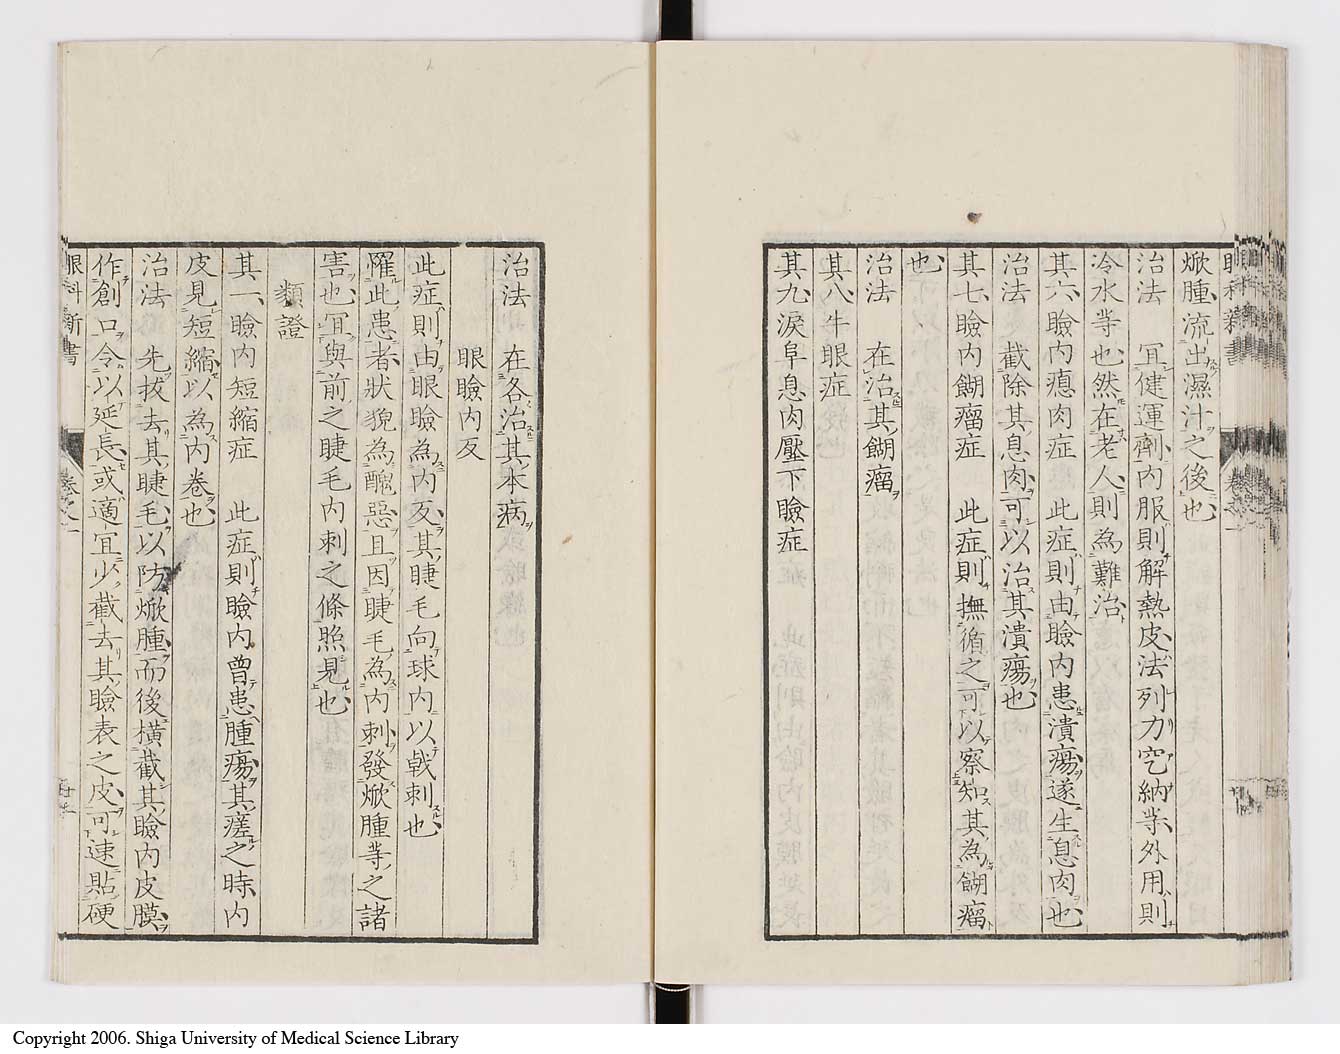 焮腫、流出濕汁之後也
治法　冝健運劑、内服則解熱皮、法列力突納等、外用則
冷水等也、然在老人、則為難治、
其六、瞼内瘜肉症　此症則由瞼内患潰瘍、遂生息肉也、
治法　截除其息肉、可以治其潰瘍也
其七、瞼内餬瘤症　此症則撫循之、可以察知其為餬瘤
也、
治法　在治其餬瘤
其八、牛眼症
其九、淚阜息肉壓下瞼症
治法　在各治其本病
眼瞼内反
此症則由眼瞼為内反、其睫毛向球内、以戟刺也
罹此患者、狀貌為醜惡、且因睫毛為内刺、發焮腫等之諸
害也、冝與前之睫毛内刺之條照見也、
類證
其一、瞼内短縮症　此症則瞼内曾患腫瘍、其瘥之時、内
皮見短縮、以為内卷也
治法　先拔去其睫毛、以防焮腫、而後橫截其瞼内皮膜、
作創口、令以延長、或適宜少截去其瞼表之皮、可速貼硬
眼科新書
卷之一
Copyright 2006. Shiga University of Medical Science Library